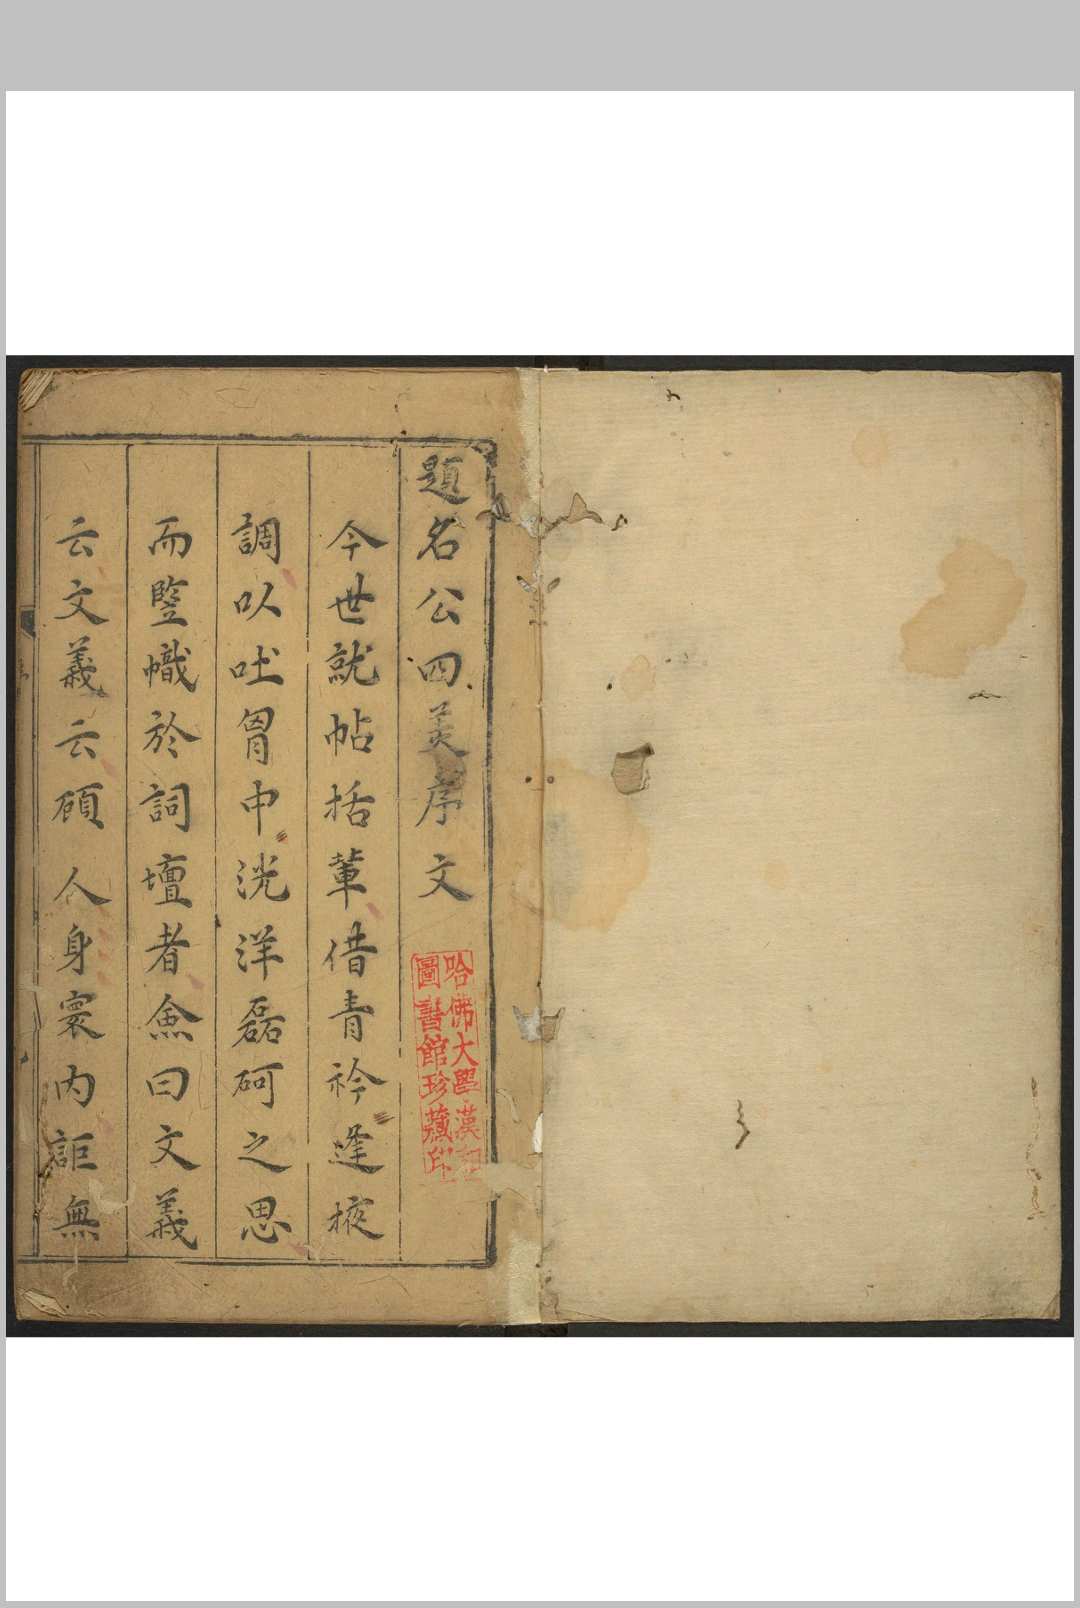 題名公四美序文
今世就帖括輩借青衿逢掖
調以吐胷中洸洋磊砢之思
而豎幟於詞壇者僉曰文義
云文義云顧人身寰内詎無
哈佛大學漢和
圖書館珍藏印